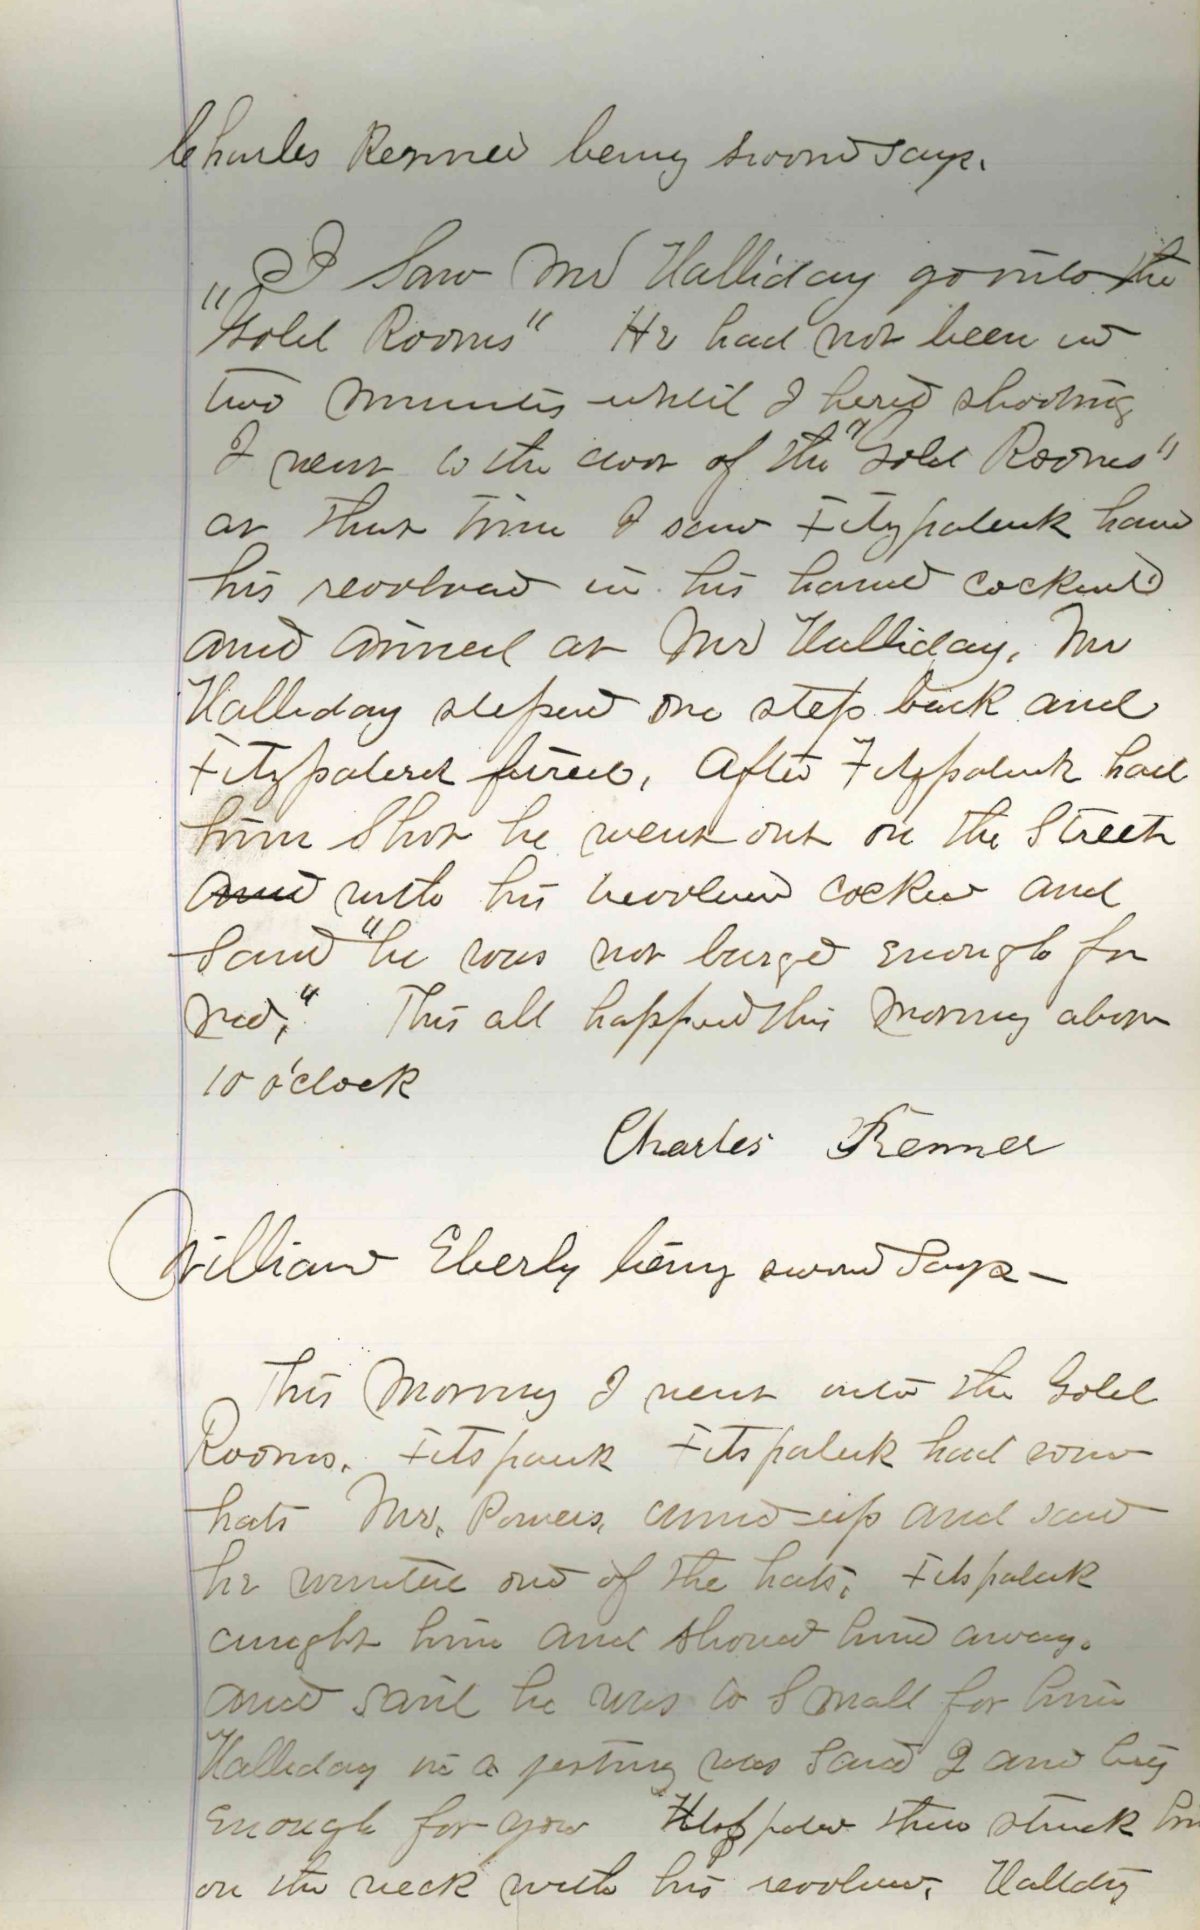 Charles Renner being sworn says.
"I Saw Mr Halliday go into the
"Gold Rooms" He had not been in
two minutes until I herd shooting
I went to the door of the "Gold Rooms"
at that time I saw Fitzpatrick have
his revolver in his hand cocked
and aimed at Mr Halliday, Mr
Halliday steped one step back and
Fitzpatrick fired, After Fitzpatrick had
him Shot he went out on the Street
and with his revolver cocked and
Said "he was not large enough for
me," This all happned this morning about
10 o'clock
Charles Renner
William Eberly being sworn Says -
This Morning I went into the Gold
Rooms. Fitspatrick had some
hats Mr. Powers, came up and said
he wanted one of the hats. Fitspatrick
caught him and shoved him away.
and said he was to Small for him
Halliday in a jesting way Said I am big
enough for you then struck him
on the neck with his revolver. Halliday